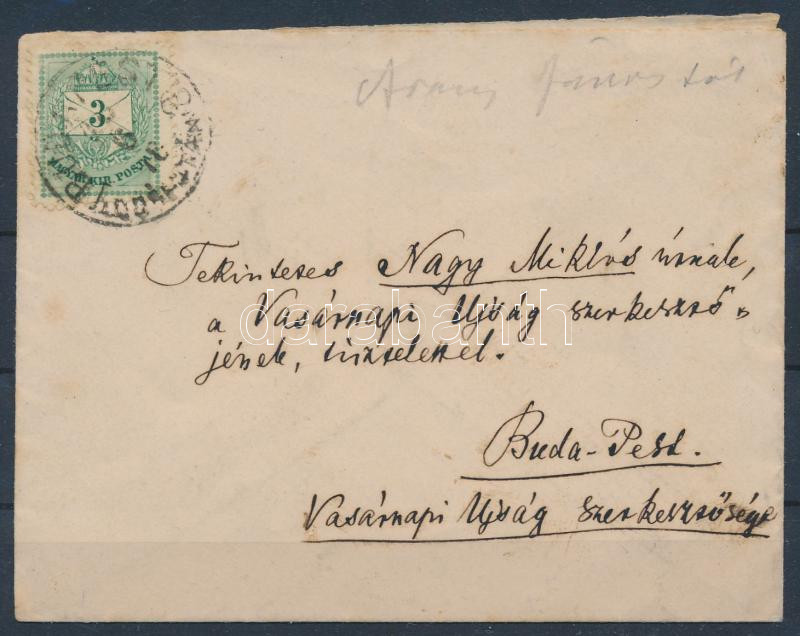 Arany Jánostól
3
MAGYAR KIR. POSTA
Tekintetes Nagy Miklós úrnak,
a Vasárnapi Ujság szerkesztő-
jének, tisztelettel.
darabanth
Buda-Pest.
Vasárnapi Ujság szerkesztősége